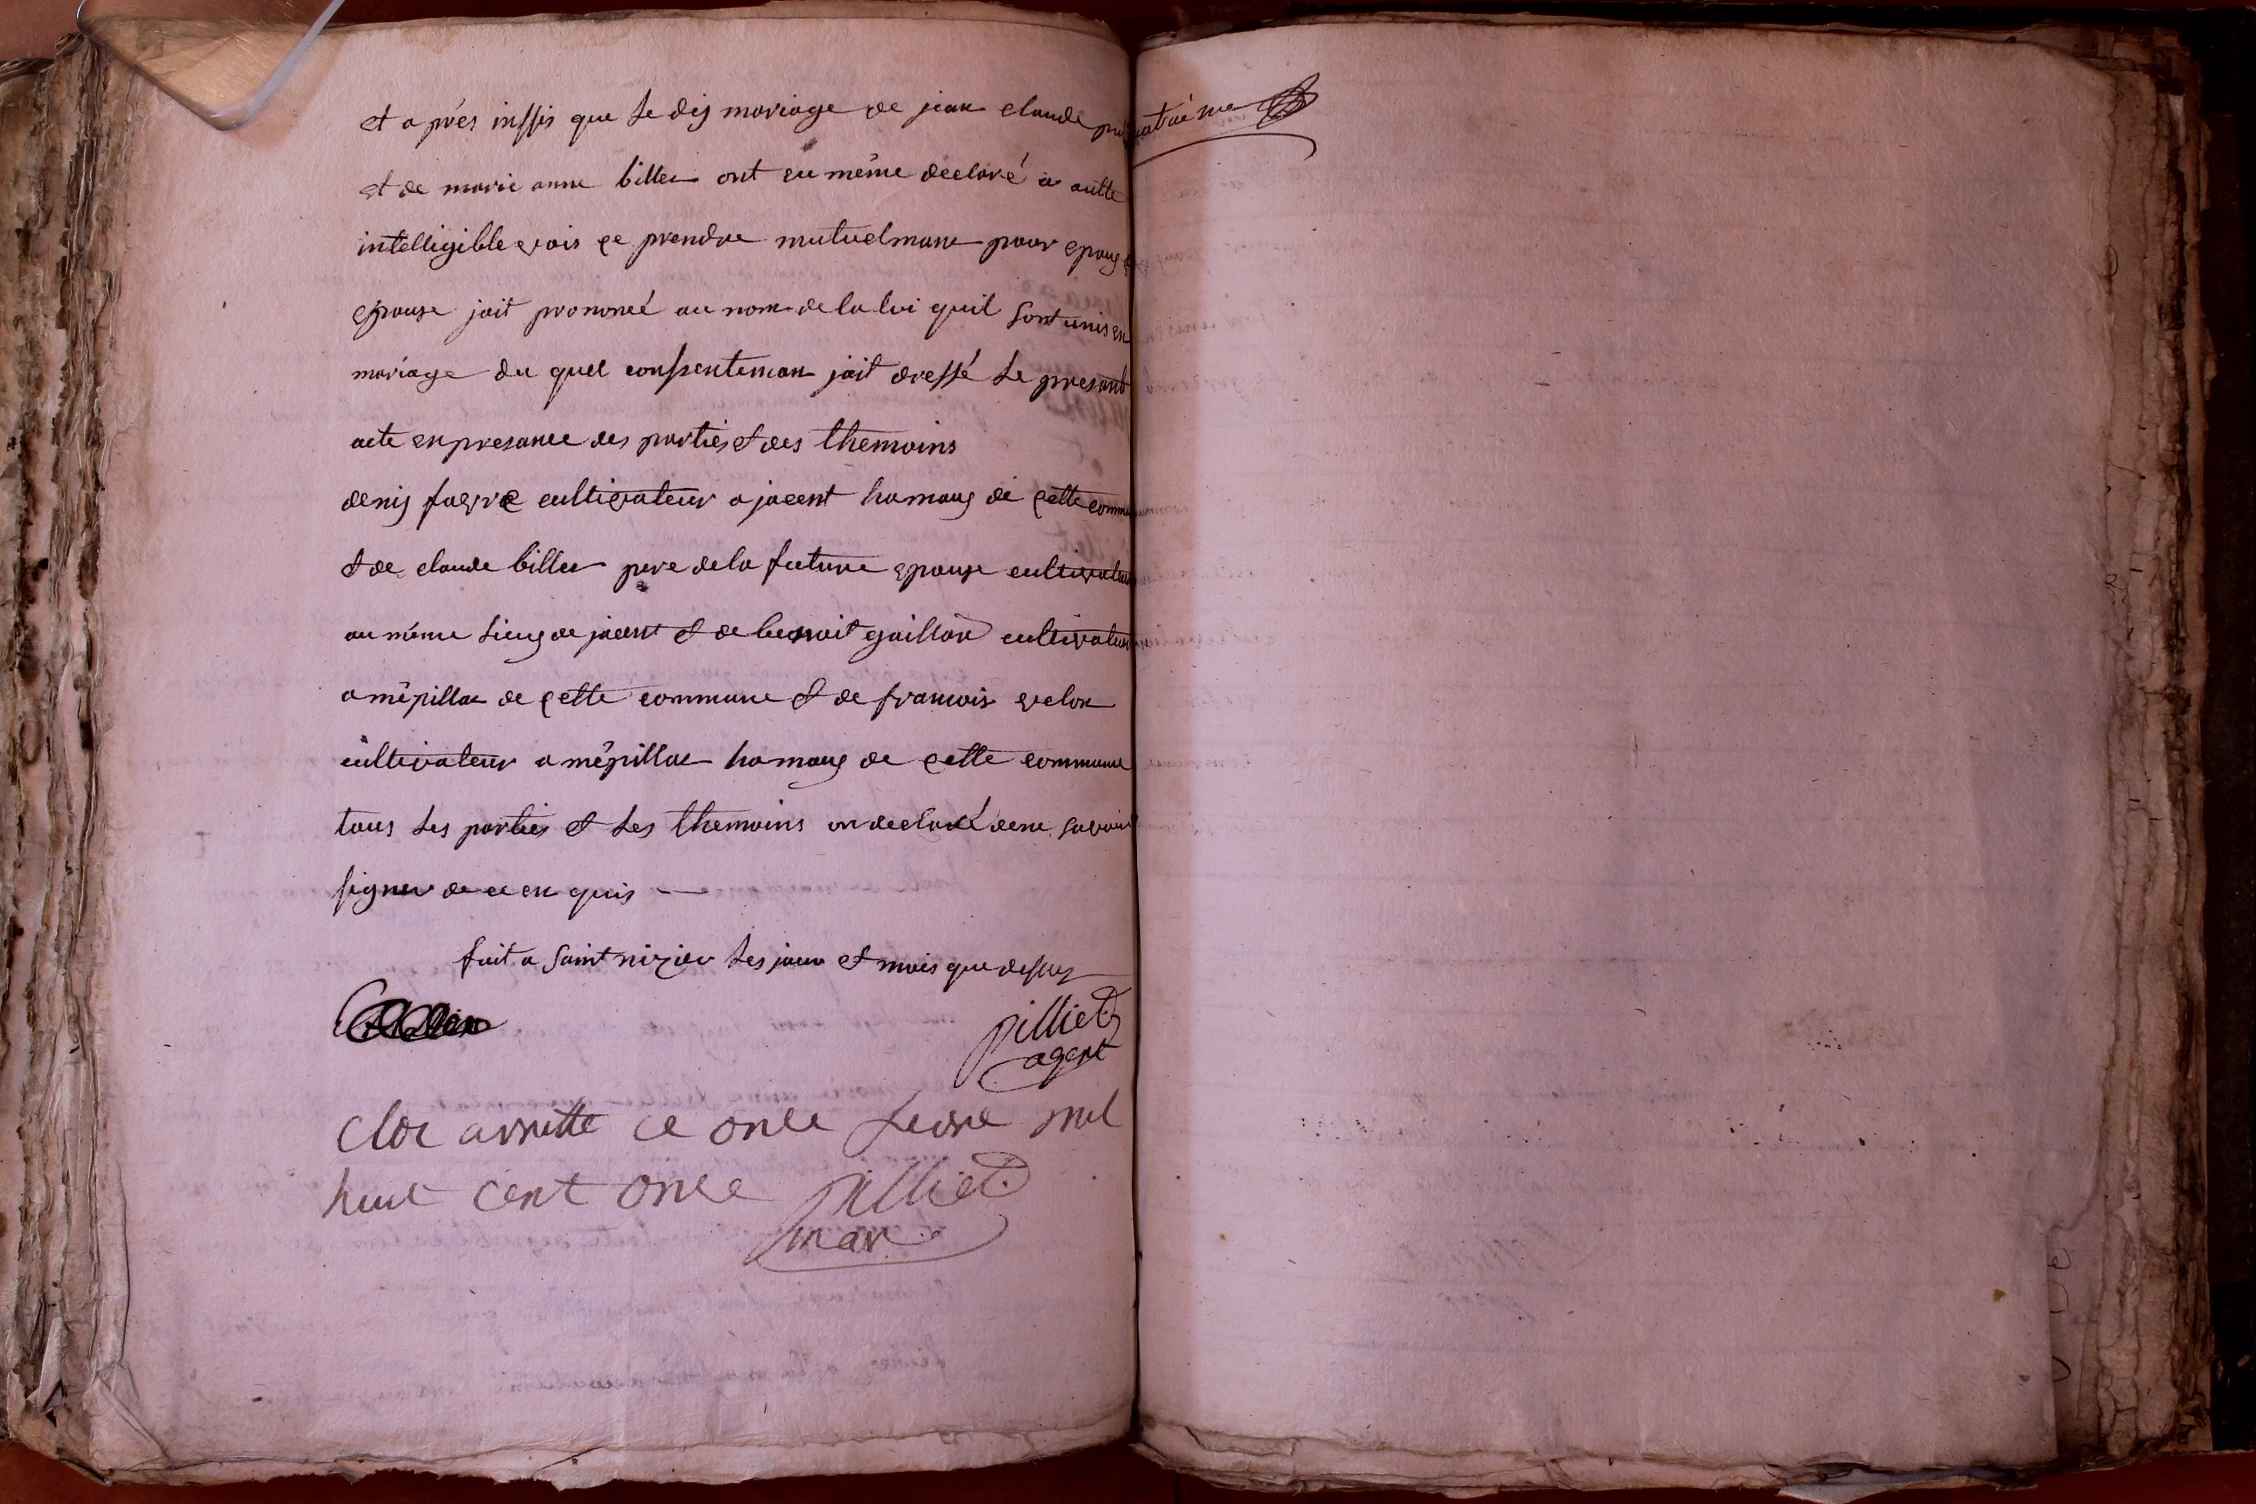 et aprés inssis que le dis mariage de jean claude
et de marie anne billet ont eu même declaré a autte
intelligible vois ce prendre mutuelman pour epous
epouse jait prononcé au nom de la loi quil sont unis en
mariage du quel conssenteman jait dressé le presant
acte en presance des parties et des themoins
denis favre cultivateur a jacent hamaus de cette
et de claude billet pere de la future epouse cultivateur
au même lieus de jacent et de benoit gaillan cultivateur
a mépillat de cette commune et de francois velon
cultivateur a mépillat hamaus de cette commune
tous les parties et les themoins on declaré de ne savoir
signer de ce en quis —
fait a saint nizier les jour et mois que dessus
pilliet
agent
cloc arrette ce onze mil
huit cent onze pilliet
mar
quatriéme